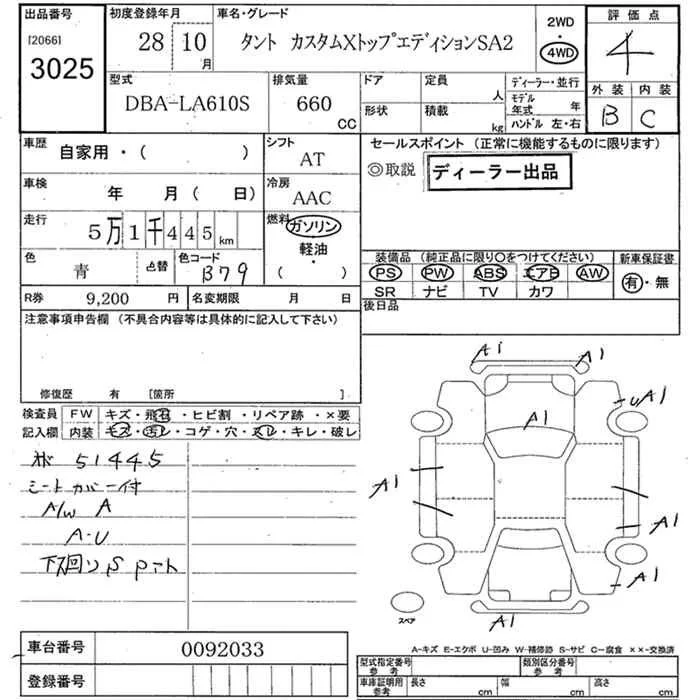 出品番号
[2066]
3025
初度登録年月
28 10 月
車名・グレード
タント カスタムXトップエディションSA2
2WD
・
4WD
評価点
4
外装 内装
B C
型式
DBA-LA610S
排気量
660 CC
ドア
定員 人
形状
積載 kg
ディーラー・並行
モデル年式 年
ハンドル 左・右
車歴 自家用・( )
シフト
AT
車検 年 月( 日)
冷房
AAC
走行
5万1千445km
燃料
ガソリン
・
軽油
・
( )
色
青
色替
色コード
B79
R券 9,200 円
名変期限 月 日
セールスポイント (正常に機能するものに限ります)
◎取説 ディーラー出品
装備品 (純正品に限り○をつけてください)
PS PW ABS エアB AW
SR ナビ TV カワ
新車保証書
有・無
後日品
注意事項申告欄 (不具合内容等は具体的に記入して下さい)
修復歴 有 [箇所 ]
検査員記入欄
FW キズ・飛石・ヒビ割・リペア跡・×要
内装 キズ・汚レ・コゲ・穴・スレ・キレ・破レ
51445
シートカバー付
A/W A
A・U
下回りS
A1
A1
A1
UA1
A1
A1
A1
A1
スペア
A-キズ E-エクボ U-凹み W-補修跡 S-サビ C-腐食 ××-交換済
車台番号 0092033
登録番号
型式指定番号 参考
類別区分番号 参考
車庫証明用 参考
長さ cm
幅 cm
高さ cm